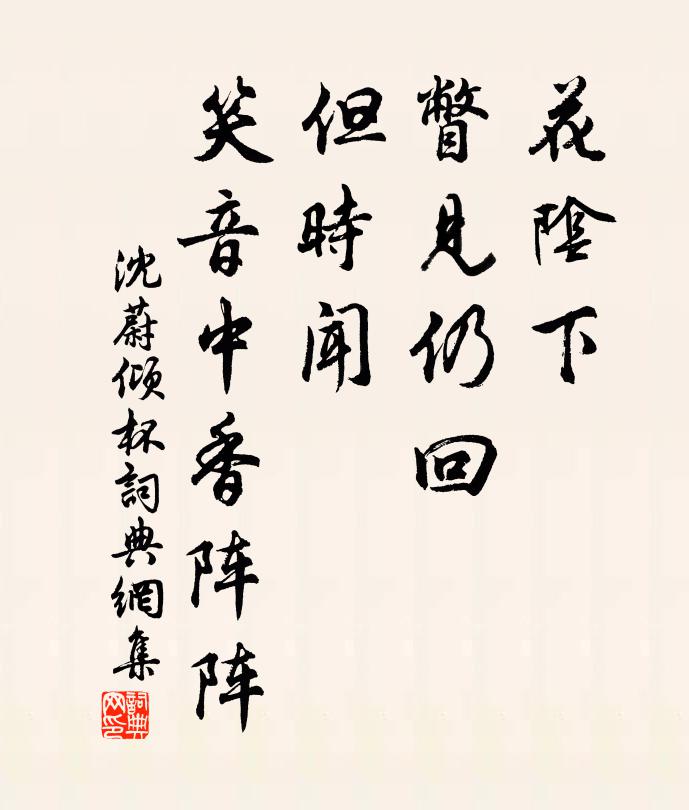 花陰下
瞥見仍回
但時聞
笑音中香阵阵
沈蔚傾杯詞典網集
詞典网印